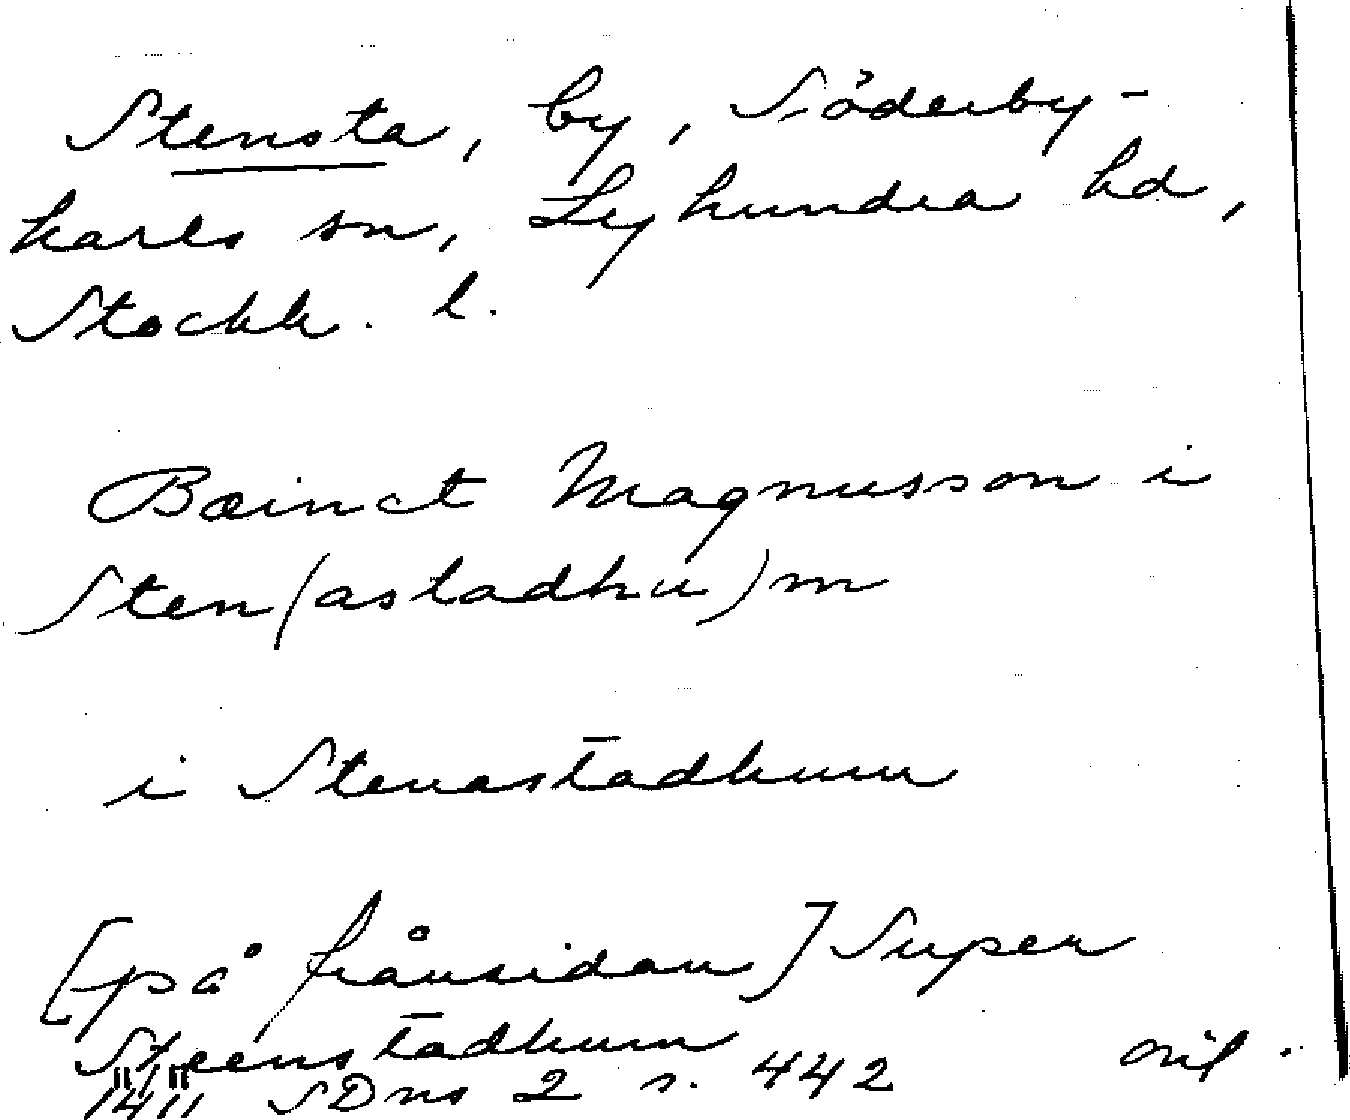 Stensta, by, Söderby-
karls sn, Lyhundra hd,
Stockh. l.
Bæinct Magnusson i
Sten(astadhu)m
i Stenastadhum
[på frånsidan] Super
Steenstadhum
1411 SDns 2 s. 442 orig.